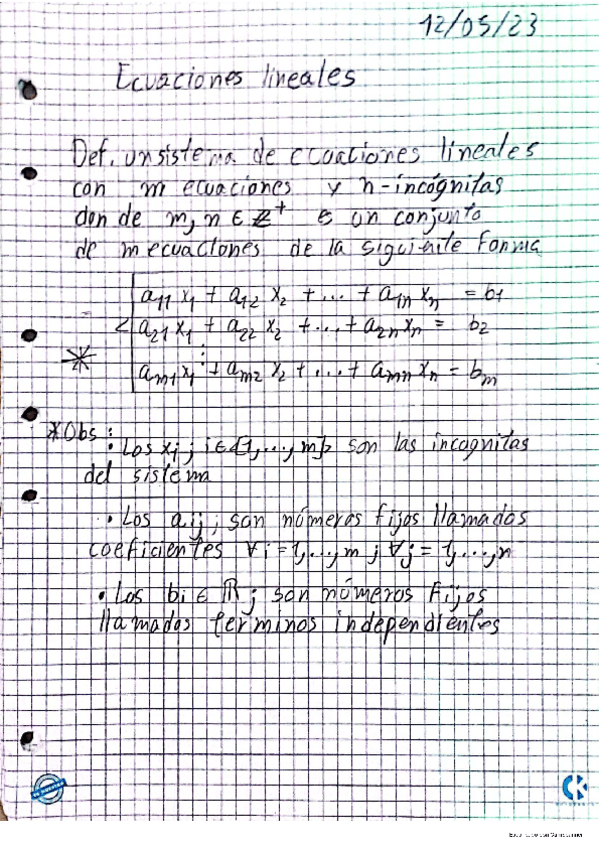 12/05/23
Ecuaciones lineales
Def. un sistema de ecuaciones lineales
con m ecuaciones y n-incógnitas
donde m, n ∈ ℤ⁺ es un conjunto
de m ecuaciones de la siguiente forma
a₁₁ x₁ + a₁₂ x₂ + ... + a₁ₙ xₙ = b₁
a₂₁ x₁ + a₂₂ x₂ + ... + a₂ₙ xₙ = b₂
*
⋮
aₘ₁ x₁ + aₘ₂ x₂ + ... + aₘₙ xₙ = bₘ
*Obs:
• Los xᵢ ; i ∈ {1, ..., m} son las incognitas
del sistema
• Los aij ; son números fijos llamados
coeficientes ∀ i = 1, ..., m ; ∀ j = 1, ..., n
• Los bi ∈ ℝ ; son números fijos
llamados terminos independientes
CK